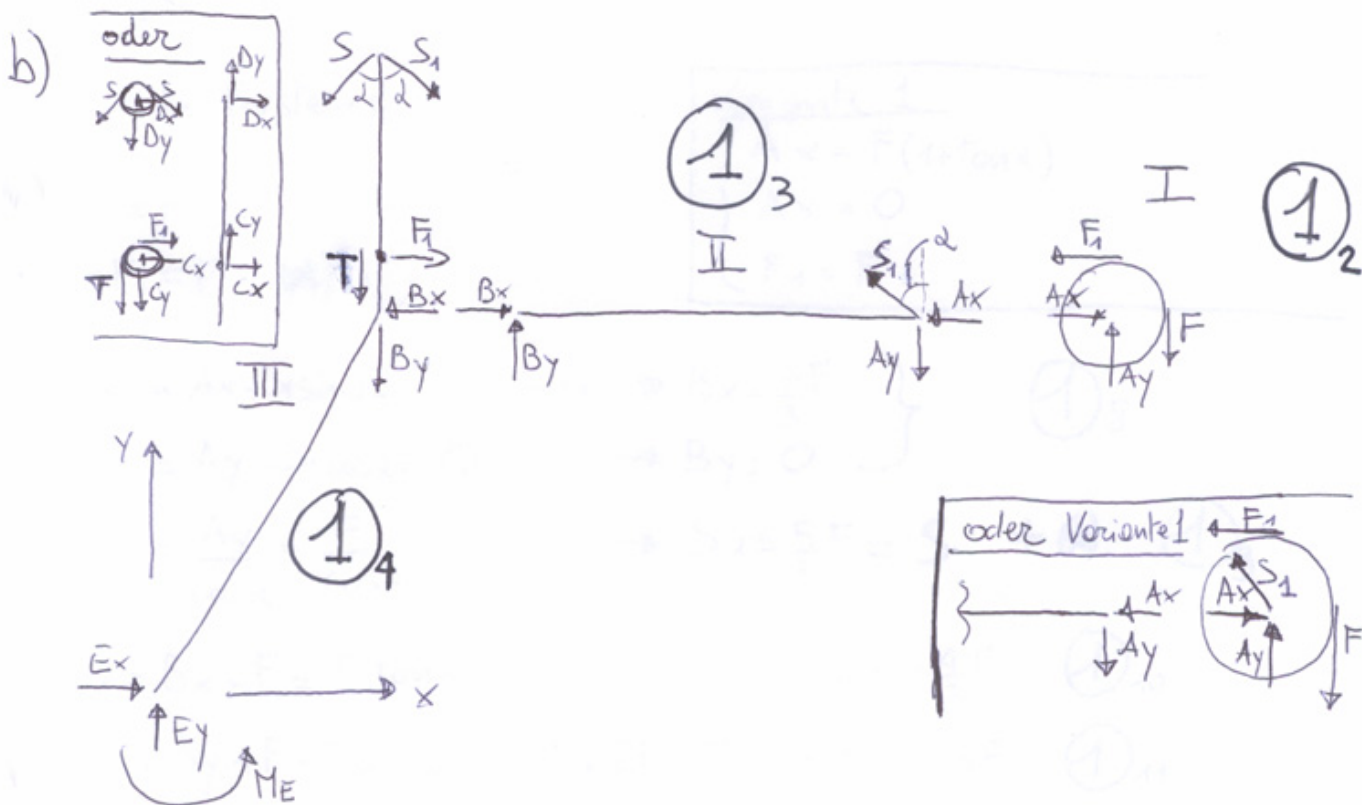 b)
oder
Dy
S
S
Dx
Dy
Dx
F1
Cy
Cx
F
Cy
Cx
III
S
S1
α
α
F1
Bx
By
Bx
By
1 3
II
S1
α
Ax
Ay
I
1 2
F1
Ax
F
Ay
Y
1 4
Ex
X
Ey
ME
oder Variante1
F1
Ax
Ay
Ax
S1
Ay
F